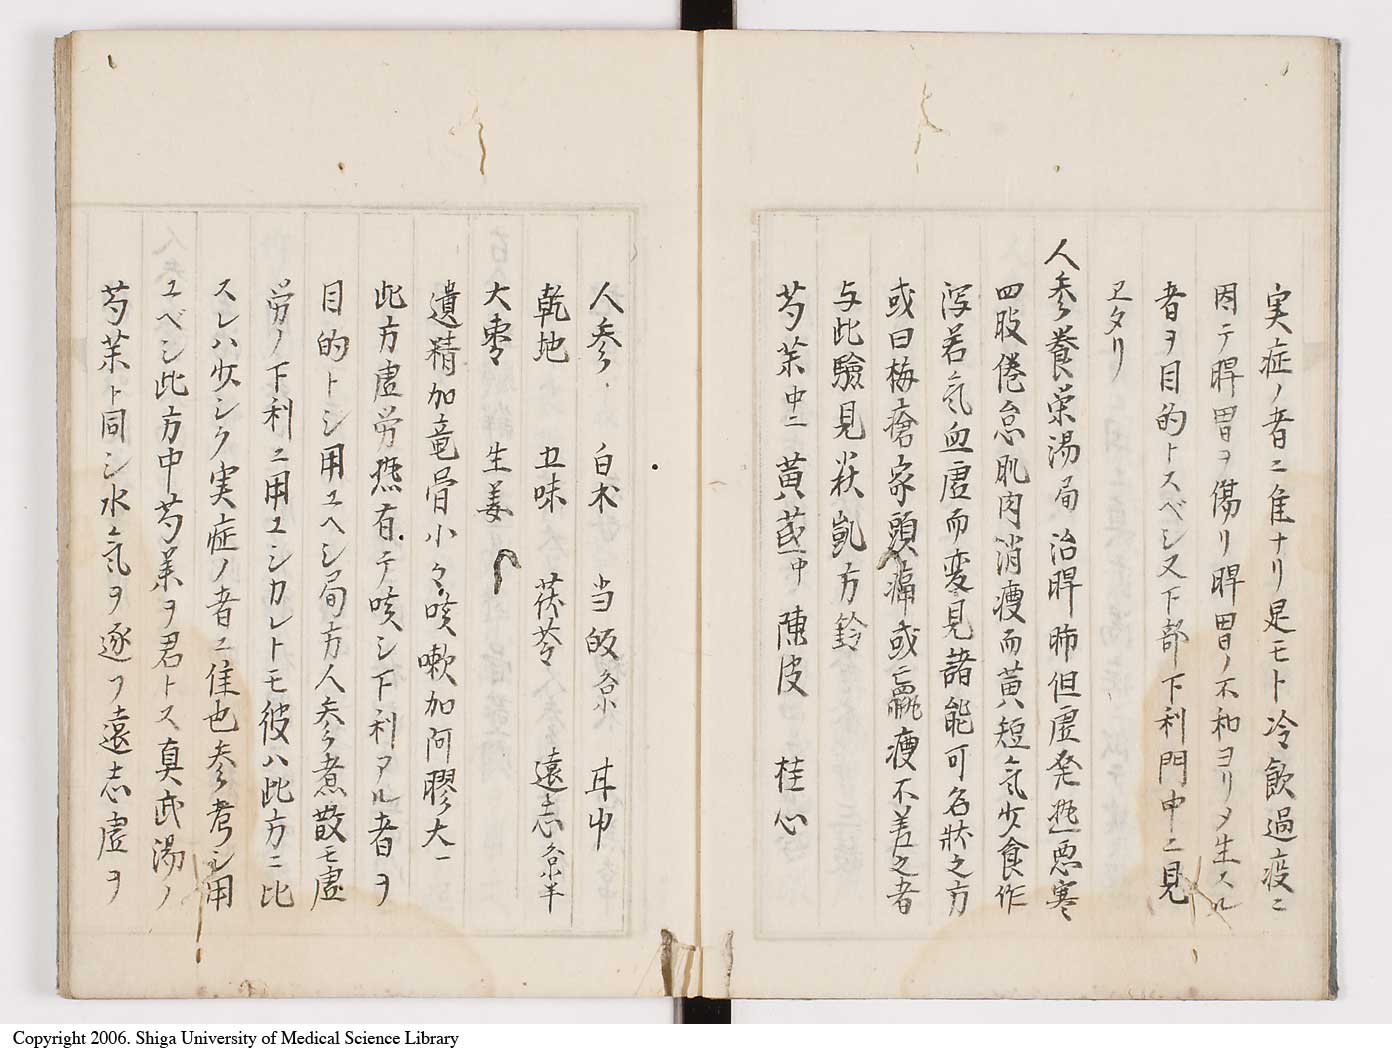 実症ノ者ニ隹ナリ是モト冷飲過度ニ
因テ脾胃ヲ傷リ脾胃ノ不和ヨリメ生スル
者ヲ目的トスベシ又下部下利門中ニ見
ヱタリ
人参養栄湯局 治脾肺但虚発𤍠悪寒
四肢倦怠肌肉消痩而黄短気少食作
泻若気血虚而変見諸能可名状之方
或曰梅瘡家頭痛或羸痩不差之者
与此驗見狄凱方鈴
芍薬中ニ 黄芪中 陳皮 桂心
人参 白朮 当皈各小 甘中
乾地 五味 茯苓 遠志各半
大棗 生姜
遺精加竜骨小々咳嗽加阿膠大一
此方虚労𤍠有テ咳シ下利アル者ヲ
目的トシ用ユヘシ局方人参煮散モ虚
労ノ下利ニ用ユシカレトモ彼ハ此方ニ比
スレハ少シク実症ノ者ニ隹也参考シ用
ユベシ此方中芍薬ヲ君トス真武湯ノ
芍薬ト同シ水気ヲ逐フ遠志虚ヲ
Copyright 2006. Shiga University of Medical Science Library